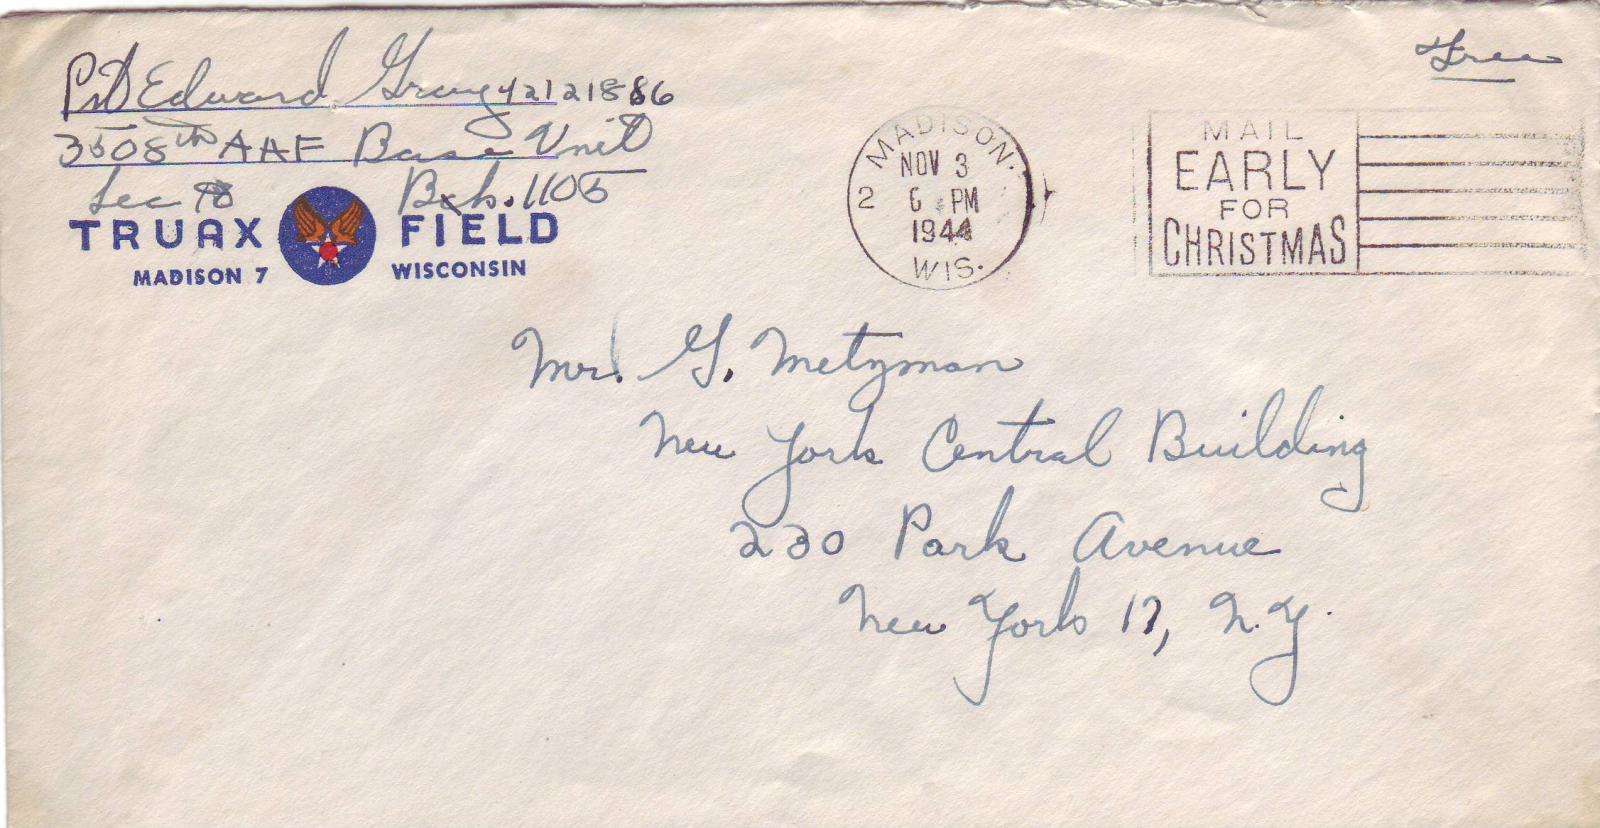 Pvt Edward 42121886
3508th AAF Base Unit
Sec Bks. 1105
TRUAX FIELD
MADISON 7 WISCONSIN
Free
MADISON.
NOV 3
2 6 PM
1944
WIS.
MAIL
EARLY
FOR
CHRISTMAS
Mr. G. Metzman
New York Central Building
230 Park Avenue
New York 17, N.Y.